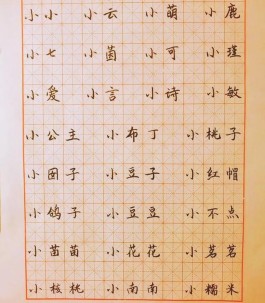 小小 小云 小萌 小鹿
小七 小茵 小可 小瑾
小爱 小言 小诗 小敏
小公主 小布丁 小桃子
小团子 小豆子 小红帽
小鸽子 小豆豆 小不点
小苗苗 小花花 小茗茗
小核桃 小南南 小糯米